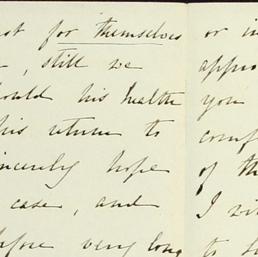 not for themselves
, still we
should his health
his return to
sincerely hope
case, and
before very long
or in
appro
you
comp
of th
I vi
to